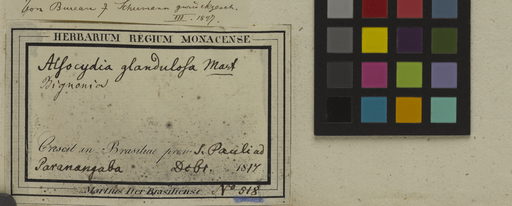 Von Bureau & Schumann zurückgesch.
III. 1897.
HERBARIUM REGIUM MONACENSE
Alsocydia glandulosa Mart
Bignonia
Crescit in Brasiliae prov. S. Pauli ad
Paranangaba Dobr. 1817
Martius Iter Brasiliense. No 518